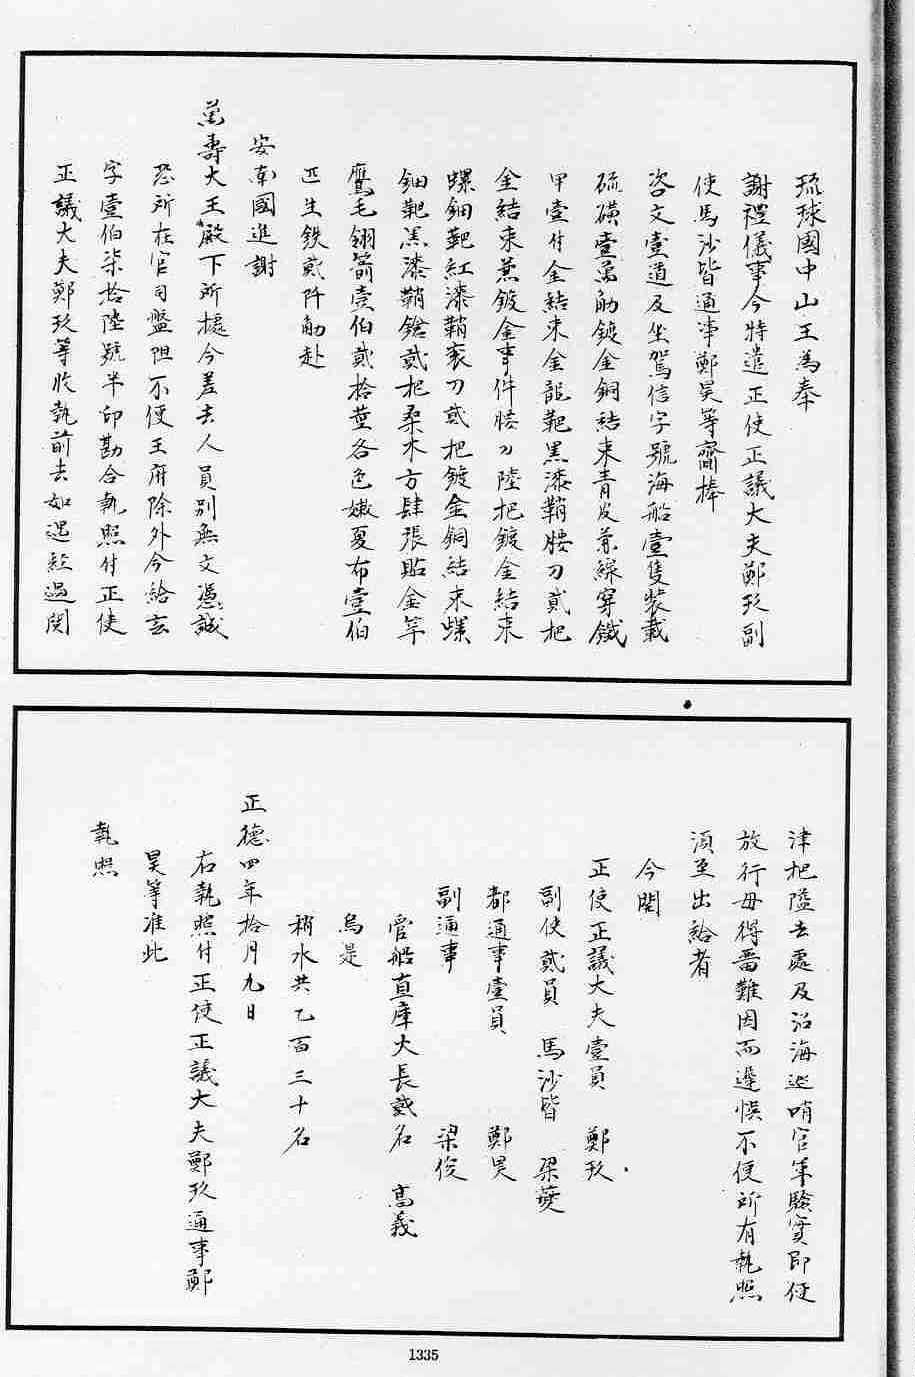 琉球國中山王為奉
謝禮儀事今特遣正使正議大夫鄭玖副
使馬沙皆通事鄭昊等齎捧
咨文壹道及坐駕信字號海船壹隻裝載
硫磺壹萬觔鍍金銅結束青皮兼綠穿鐵
甲壹付金結束金龍靶黑漆鞘腰刀貳把
金結束兼鍍金事件腰刀陸把鍍金結束
螺鈿靶紅漆鞘袞刀貳把鍍金銅結束螺
鈿靶黑漆鞘鎗貳把桑木方肆張貼金竿
鷹毛翎箭壹伯貳拾葉各色嫩夏布壹伯
匹生鉄貳阡觔赴
安南國進謝
萬壽大王殿下所據今差去人員別無文憑誠
恐所在官司盤阻不便王府除外今給玄
字壹伯柒拾陸號半印勘合執照付正使
正議大夫鄭玖等收執前去如遇經過関
津把隘去處及沿海巡哨官軍驗實即便
放行毋得留難因而遲悞不便所有執照
須至出給者
今開
正使正議大夫壹員 鄭玖
副使貳員 馬沙皆 梁
都通事壹員 鄭昊
副通事 梁俊
管船直庫大長貳名 高義
烏是
稍水共乙百三十名
正德四年拾月九日
右執照付正使正議大夫鄭玖通事鄭
昊等准此
執照
1335